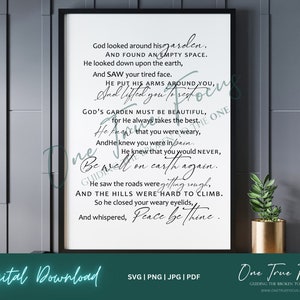 God looked around his garden,
AND FOUND AN EMPTY SPACE.
He looked down upon the earth,
And SAW your tired face.
HE PUT HIS ARMS AROUND YOU,
And lifted you to rest.
GOD'S GARDEN MUST BE BEAUTIFUL,
for He always takes the best.
He knew that you were weary,
AndHe knew you were in pain.
He knew that you would NEVER,
Be well on earth again.
He saw the roads were getting rough,
AND THE HILLS WERE HARD TO CLIMB.
So he closed your weary eyelids,
And whispered, Peace be thine.
One True Focus
GUIDING THE BROKEN TO THE ONE
Digital Download
SVG | PNG | JPG | PDF
One True Fo
GUIDING THE BROKEN TO